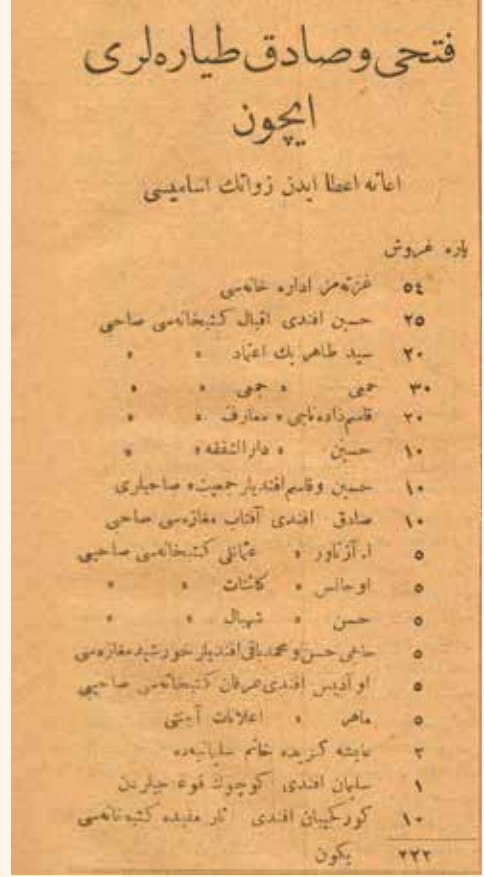 فتحی و صادق طیاره‌لری
ایچون
اعانه اعطا ایدن ذواتك اسامیسی
پاره غروش
٥٤ غزته‌مز اداره خانه‌سی
٢٥ حسین افندی اقبال كتبخانه‌سی صاحبی
٢٠ سید طاهر بك اعتماد » »
٣٠ حمی » حمی » »
٢٠ قاسم‌زاده ناجی » معارف » »
١٠ حسین » دارالشفقه » »
١٠ حسین و قاسم افندیلر جمعیت » صاحبلری
١٠ صادق افندی آفتاب مغازه‌سی صاحبی
٥ ا. آزناور » عثمانلی كتبخانه‌سی صاحبی
٥ اوحانس » كائنات » »
٥ حسن » شهبال » »
٥ حاجی حسن و محمد باقی افندیلر خورشید مغازه‌سی
٥ اوادیس افندی عرفان كتبخانه‌سی صاحبی
٥ ماهر » اعلانات آجنتی
٢ عایشه گزیده خانم سلیمانیه‌ده
١ سلیمان افندی كوچوك قوه‌جیلردن
١٠ كوركجیان افندی آثار مفیده كتبخانه‌سی
٢٢٢ یكون